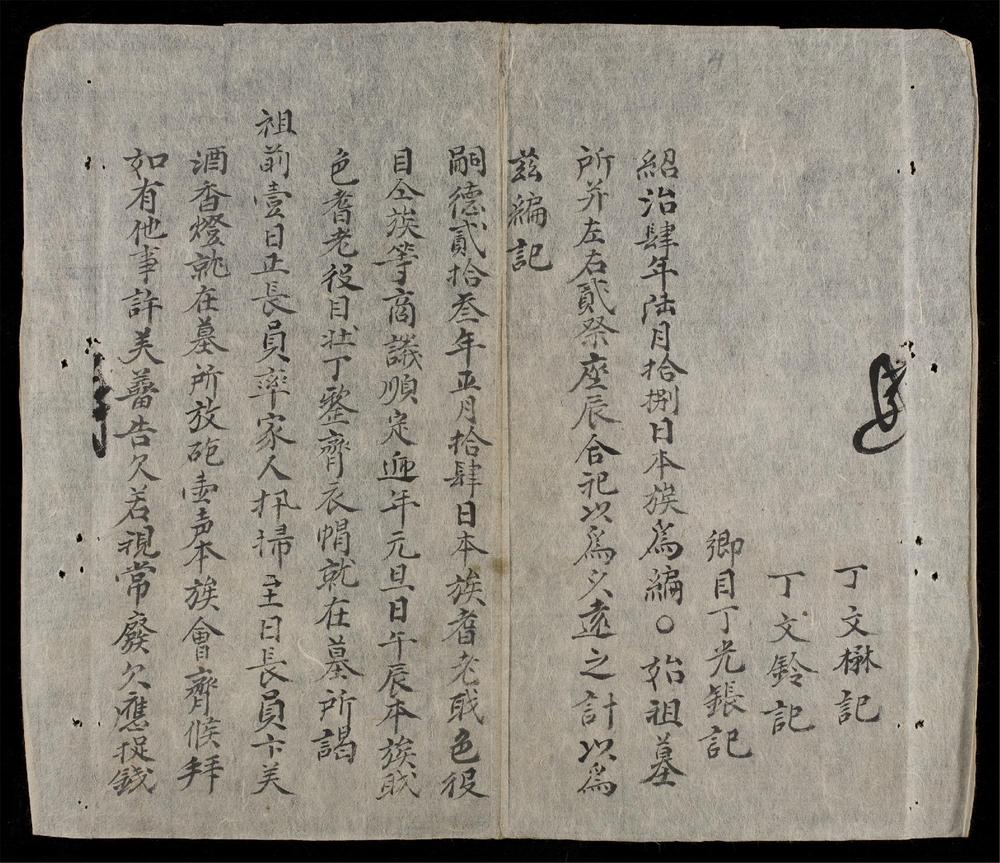 丁文楙記
丁文鈴記
鄉目丁光鋹記
紹治肆年陆月拾捌日本族為編〇始祖墓
所并左右貳祭座辰合祀以爲久遠之計以爲
茲編記
嗣德貳拾叁年正月拾肆日本族耆老戝色役
目仝族等商議順定迎年元旦日午辰本族戝
色耆老役目壯丁整齊衣帽就在墓所謁
祖前壹日正長員率家人扫掃至日長員卞美
酒香燈就在墓所放砲壹声本族會齊候拜
如有他事許美蕃告欠若視常廢欠應捉錢